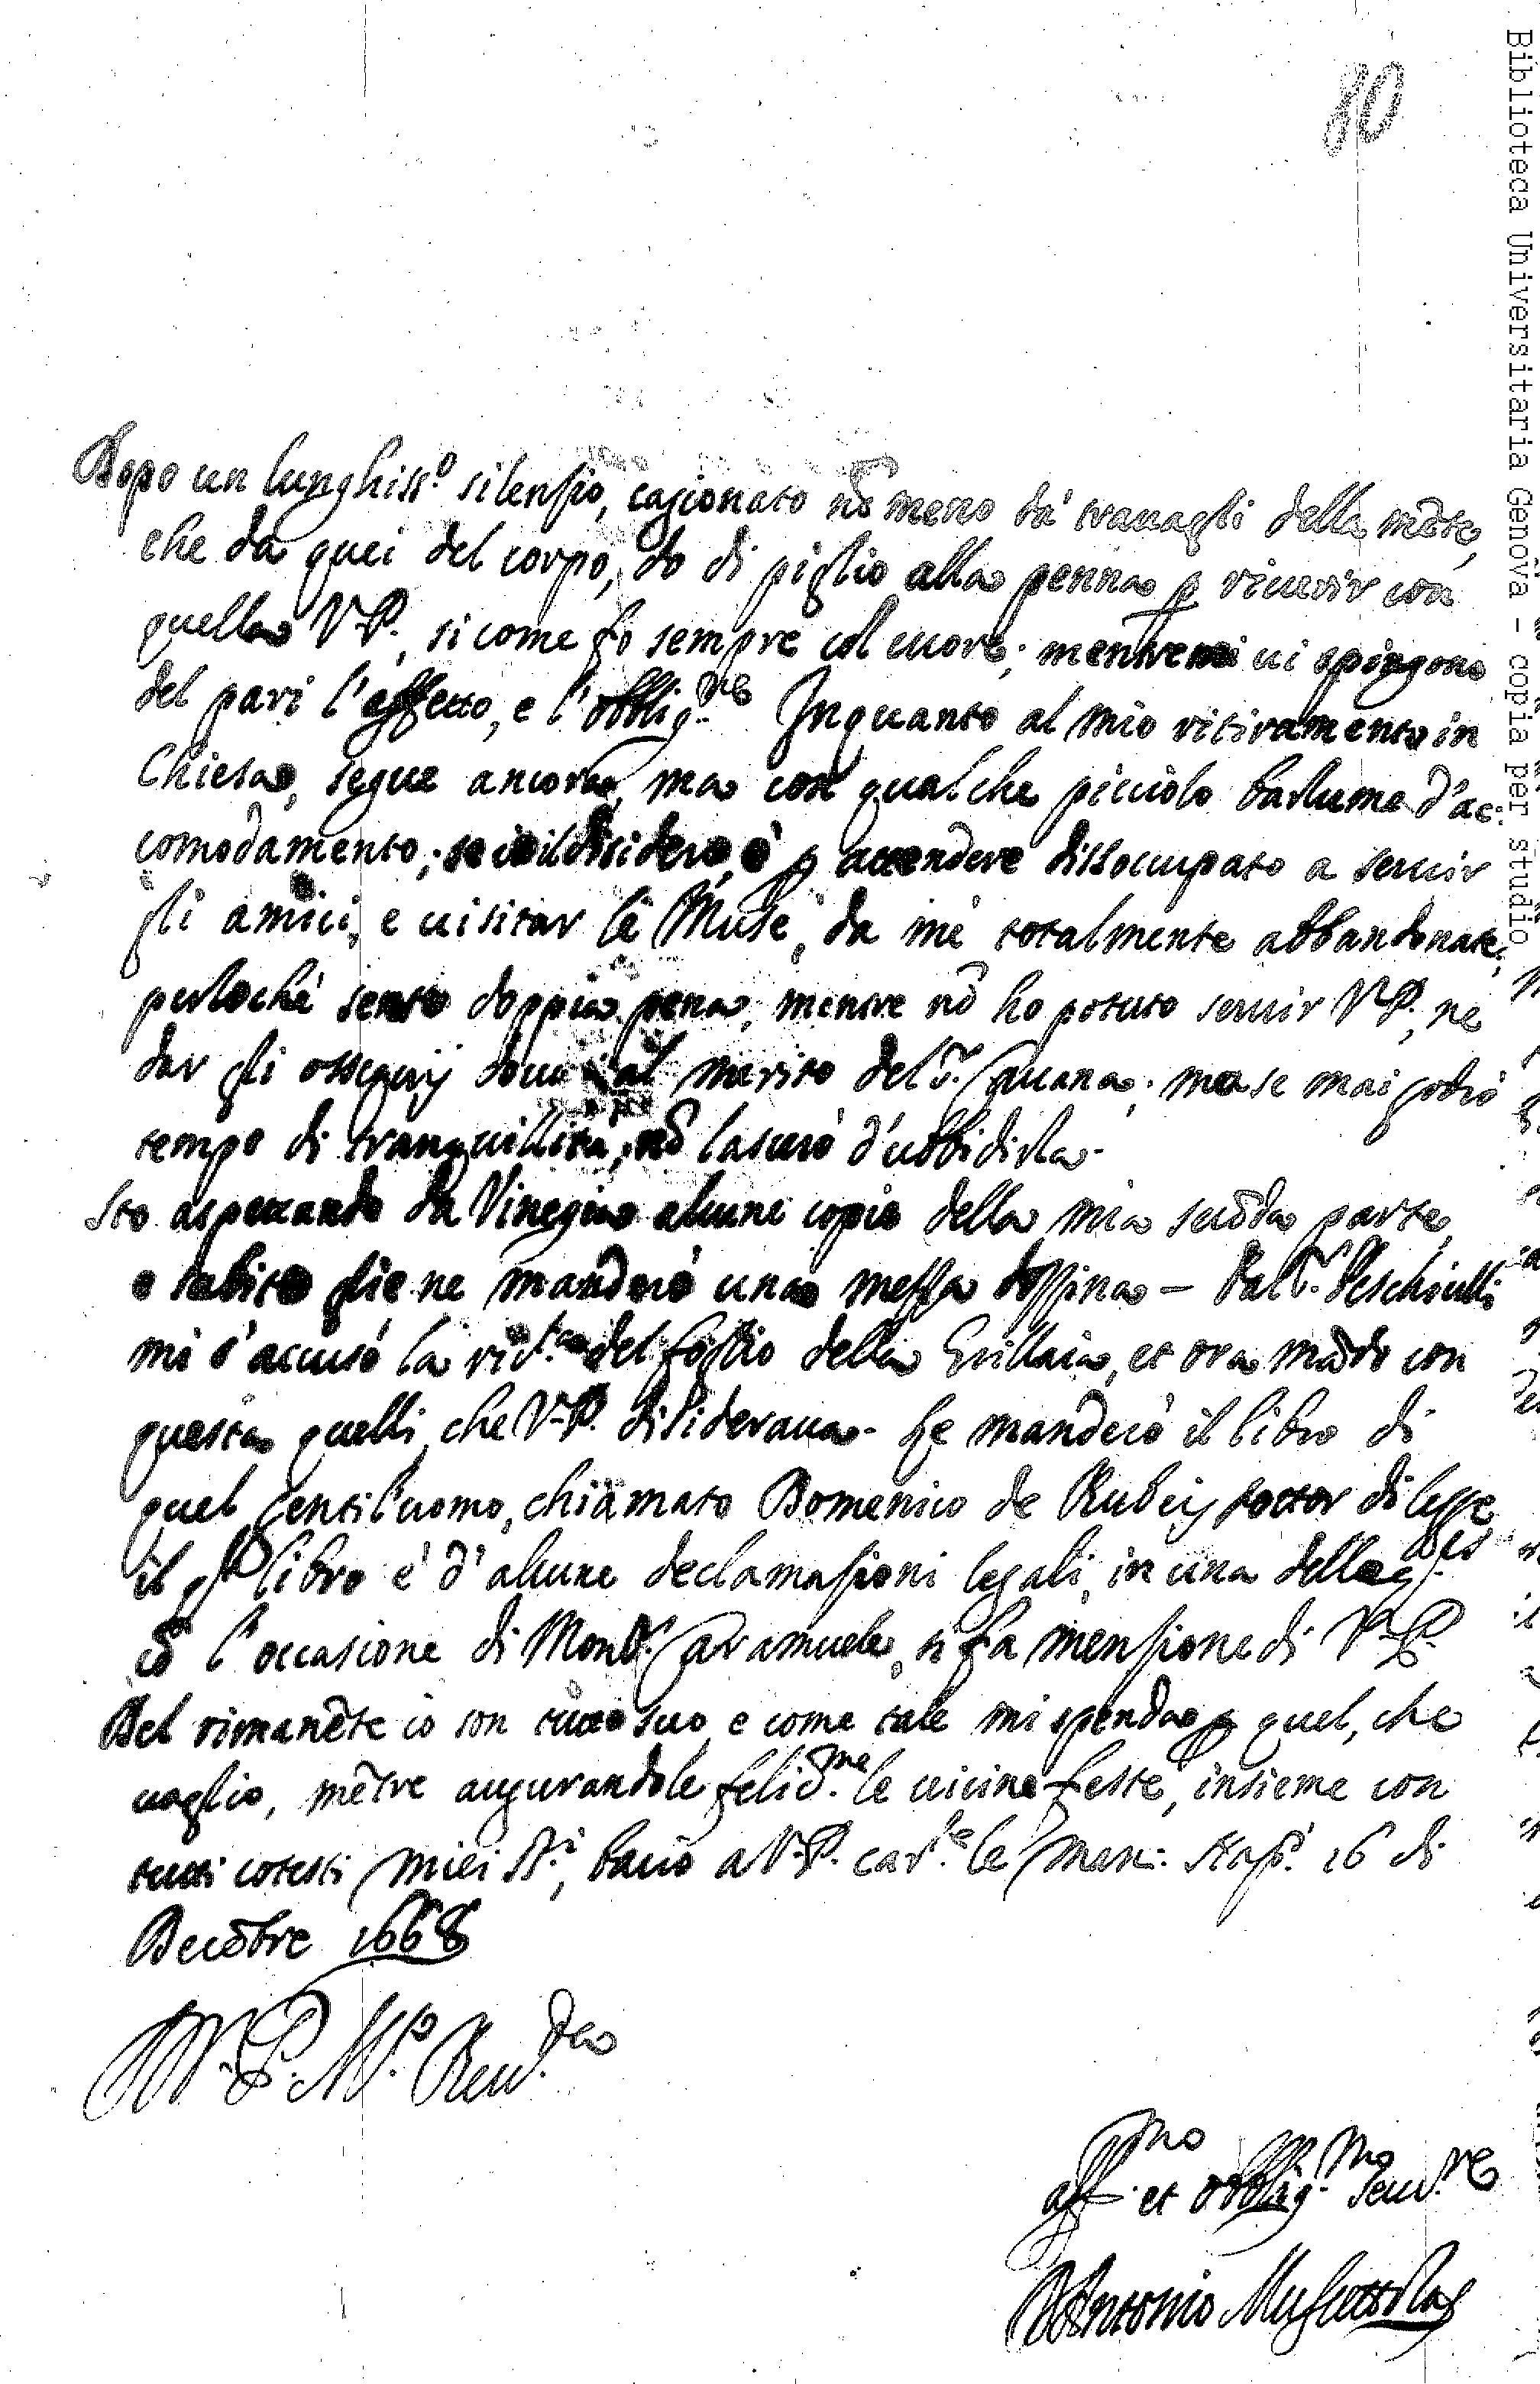 80
Biblioteca Universitaria Genova - copia per studio
Dopo un lunghiss.º silenzio, cagionato nõ meno da' trauagli della mẽte,
che da quei del corpo, do di piglio alla penna p riuerir con
quella V.P., si come fo sempre col cuore; mentre ui spingono
del pari l'affetto, e l'obblig.ne Inquanto al mio ritiramento in
Chiesa, segue ancora, ma con qualche picciolo barlume d'ac:
comodamento; se io il disidero, è p attendere dissocupato a seruir
gli amici, e uisitar le Muse, da me totalmente abbandonate;
perloché sento doppia pena, mentre nõ ho potuto seruir V.P., ne
dar gli ossequij al merito del S.r Cauana; ma se mai godrò
tempo di tranquillità, nõ lascerò d'ubbidirla.
Sto aspettando da Vinegia alcune copie della mia secõda parte,
e subito gliene manderò una mezza dozzina – Dal S.r Peschiulli
mi s'accusò la ric.ta del foglio della Grillaia, et ora mãdo con
questa quelli, che V.P. disideraua. Le manderò il libro di
quel gentil'uomo, chiamato Domenico de Rubeis dottor di legge
il libro è d'alcune declamazioni legali, in una delle
cõ l'occasione di Mons.r Caramuele, si fa menzione di V.P.
Del rimanẽte io son tutto suo, e come tale mi spenda p quel, che
uaglio, mẽtre augurandole felic.me le uicine feste, insieme con
tutti cotesti miei SS.i, bacio a V.P. car.te le mani. Nap.i 16 di
Decẽbre 1668
D V.P. M.to Reu.da
aff.mo et obblig.mo seru.re
Antonio Muscettola